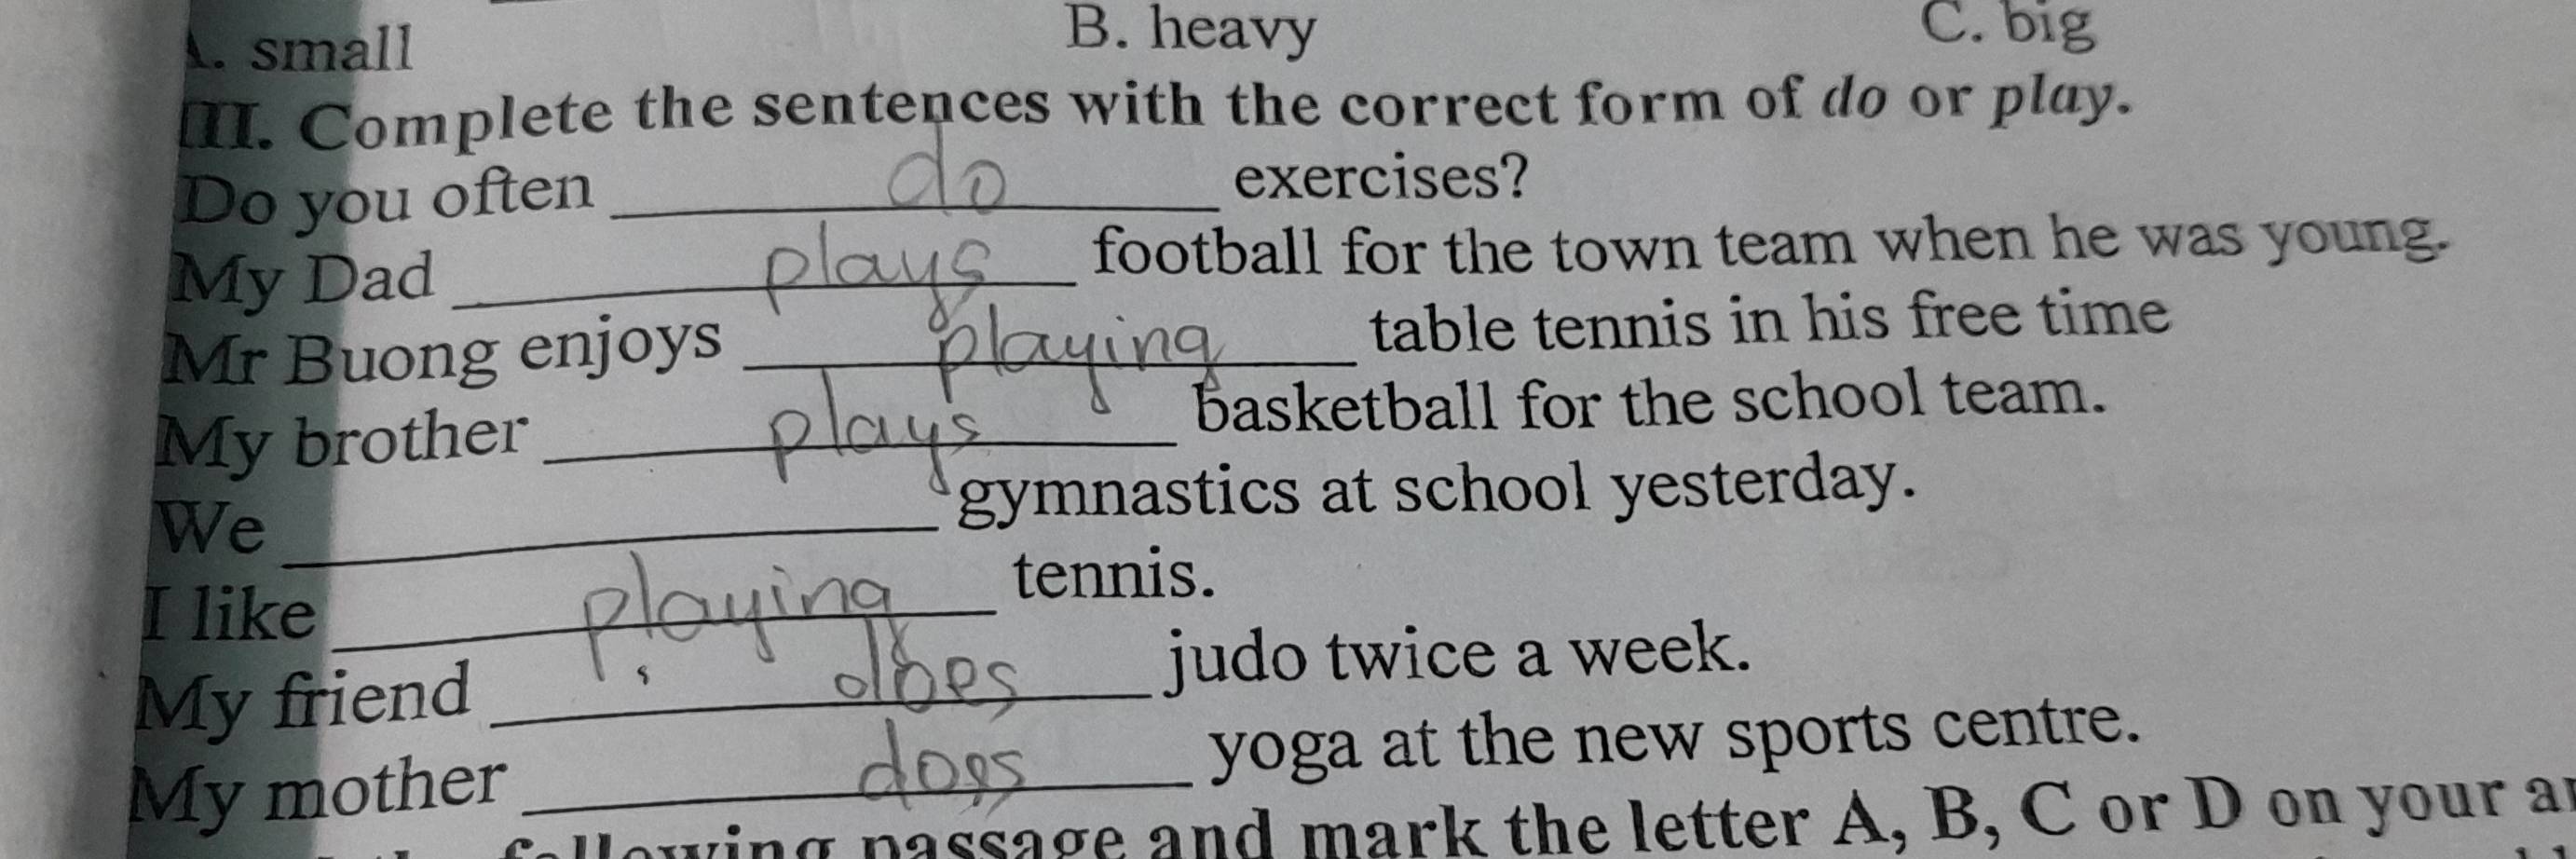 A. small B. heavy C. big
III. Complete the sentences with the correct form of do or play.
Do you often do exercises?
My Dad plays football for the town team when he was young.
Mr Buong enjoys playing table tennis in his free time
My brother plays basketball for the school team.
We ____ gymnastics at school yesterday.
I like playing tennis.
My friend does judo twice a week.
My mother does yoga at the new sports centre.
following passage and mark the letter A, B, C or D on your